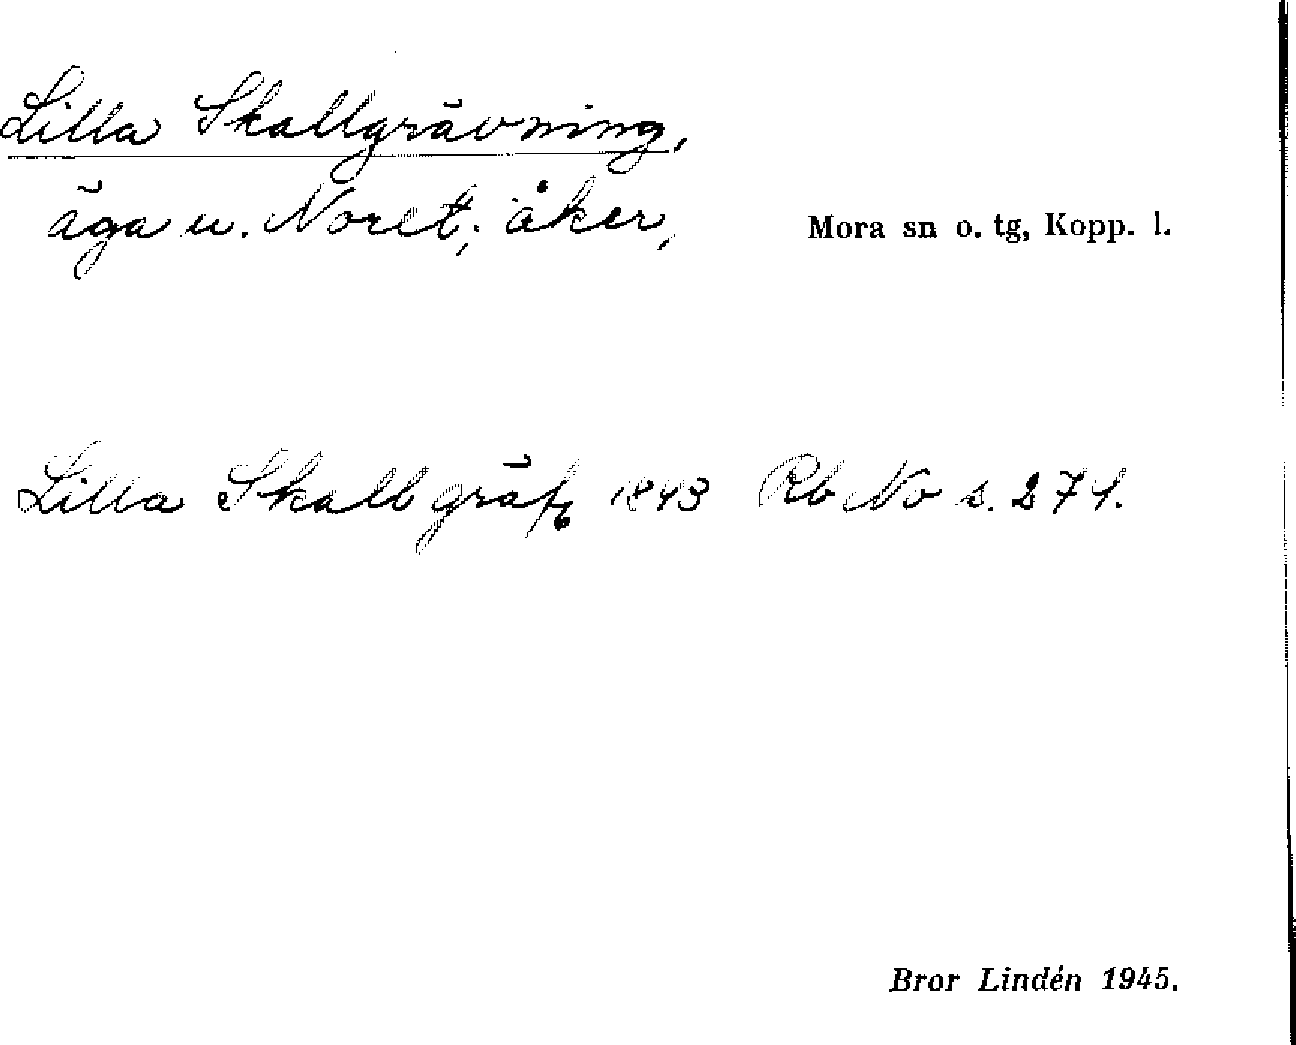 Lilla Skallgrävning,
äga u. Noret; åker, Mora sn o. tg, Kopp. l.
Lilla Skallgräfn 1843 Rb No s. 271.
Bror Lindén 1945.